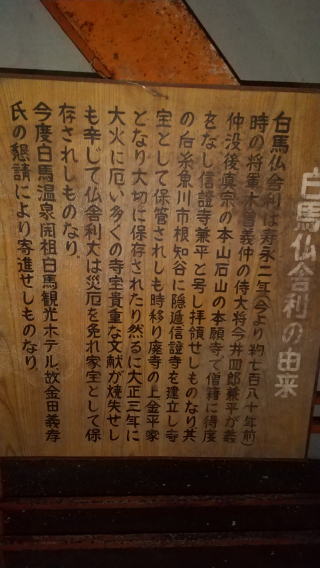 白馬仏舎利の由来
白馬仏舎利は寿永二年(今より約七百八十年前)
時の将軍木曽義仲の侍大将今井四郎兼平が義
仲没後真宗の本山石山の本願寺で僧籍に得度
をなし信證寺兼平と号し拝領せしものなり其
の后糸魚川市根知谷に隠遁信證寺を建立し寺
宝として保管されしも時移り廃寺の上金平家
となり大切に保存されたり然るに大正三年に
大火に厄い多くの寺宝貴重な文献が焼失せし
も幸じて仏舎利丈は災厄を免れ家宝として保
存されしものなり
今度白馬温泉開祖白馬観光ホテル故金田義孝
氏の懇請により寄進せしものなり